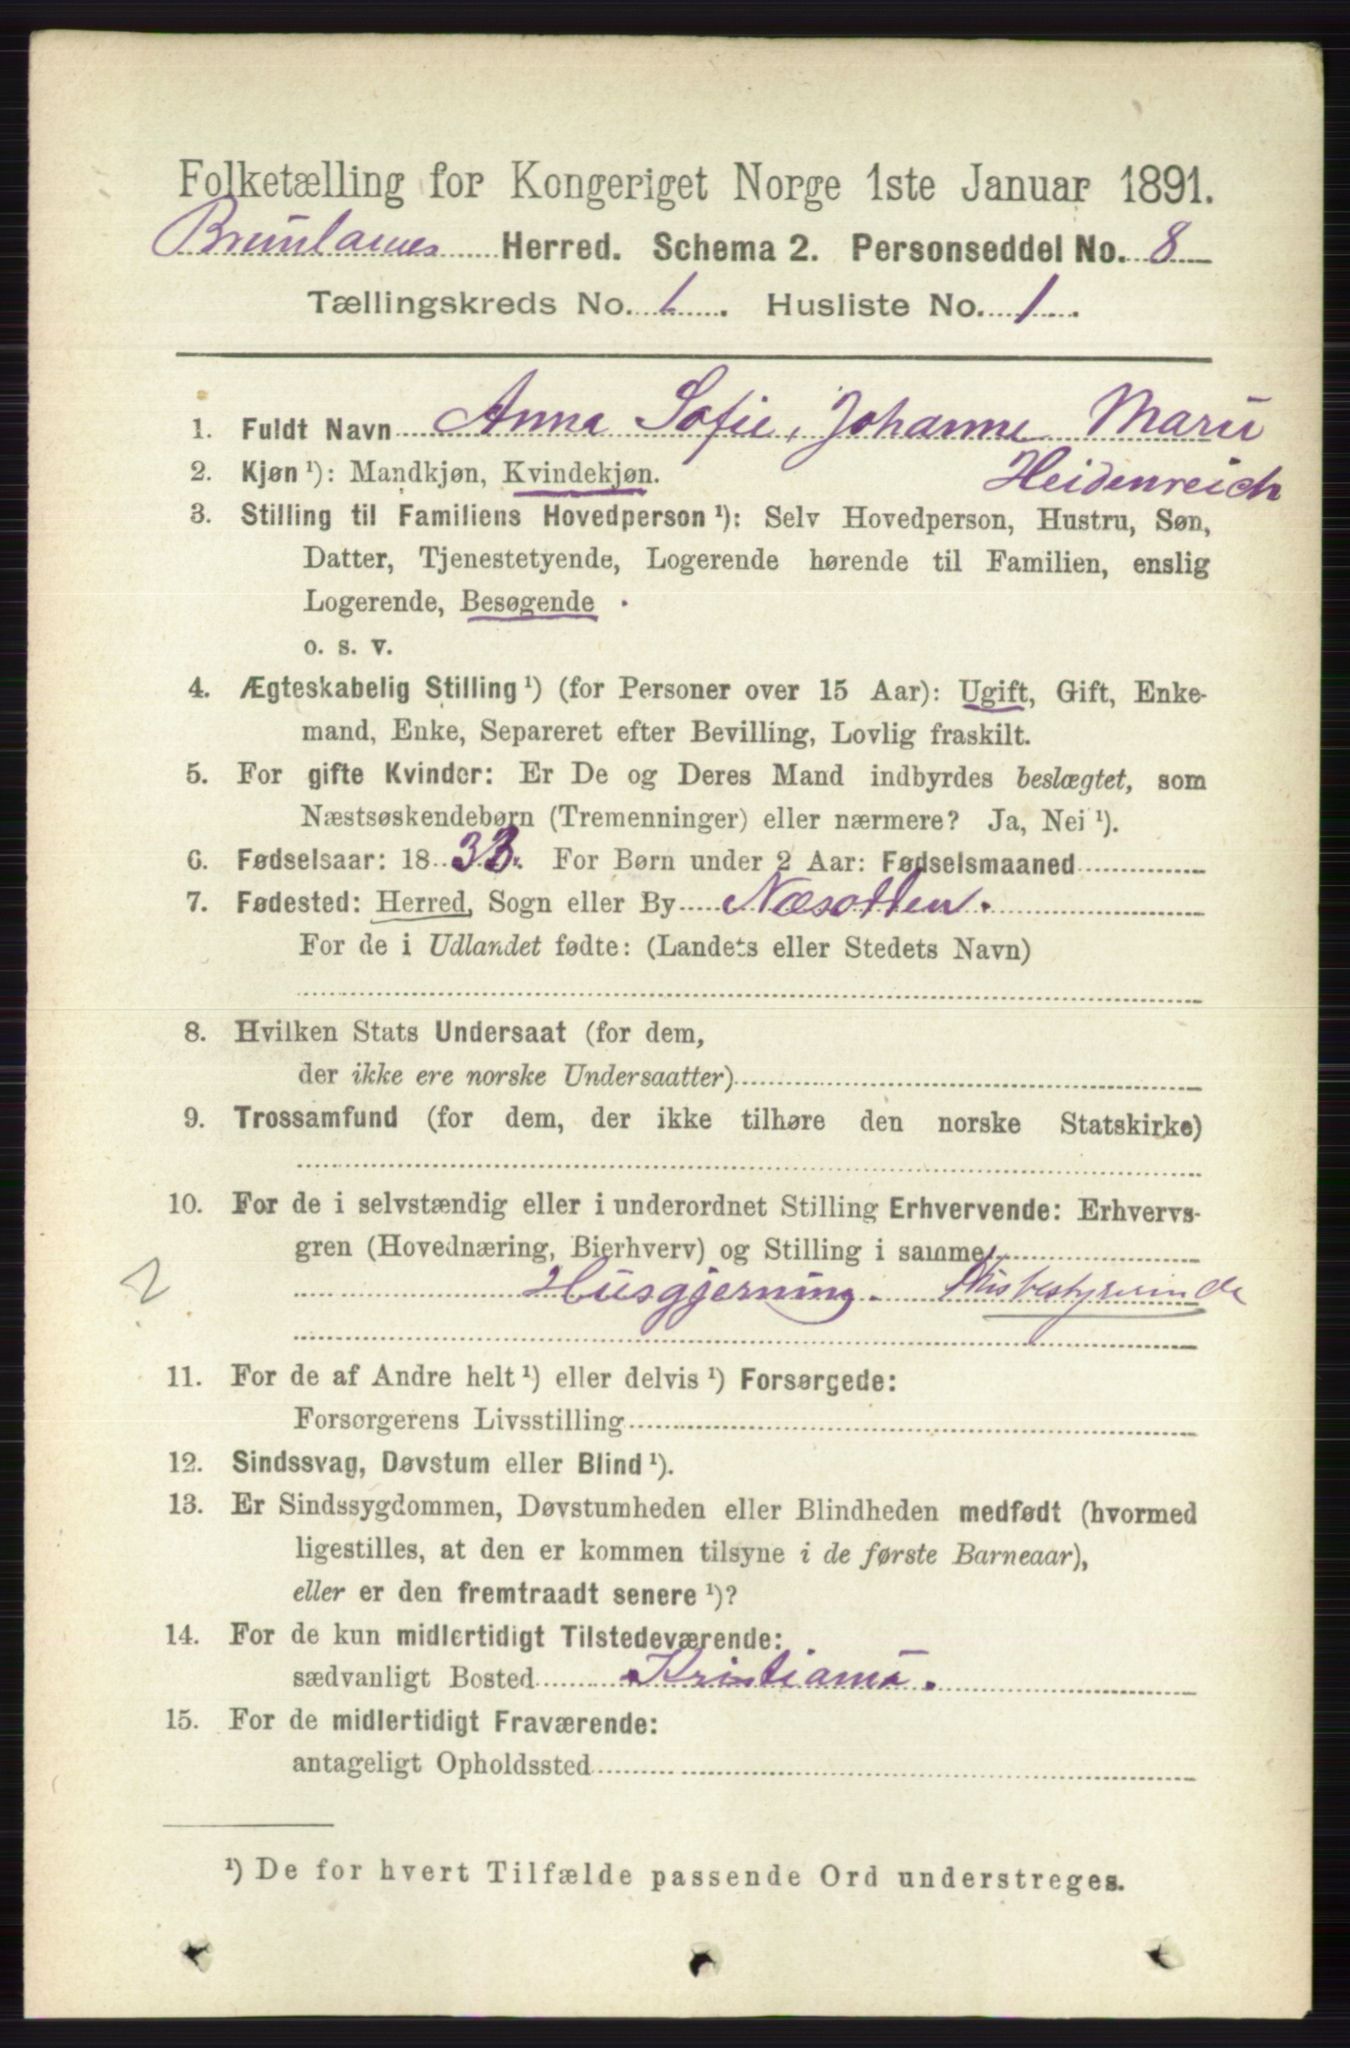 Folketælling for Kongeriget Norge 1ste Januar 1891.
Brunlanes Herred. Schema 2. Personseddel No. 8
Tællingskreds No. 1. Husliste No. 1.
1. Fuldt Navn Anna Sofie, Johanne Marie
Heidenreich
2. Kjøn ¹): Mandkjøn, Kvindekjøn.
3. Stilling til Familiens Hovedperson ¹): Selv Hovedperson, Hustru, Søn,
Datter, Tjenestetyende, Logerende hørende til Familien, enslig
Logerende, Besøgende
o. s. v.
4. Ægteskabelig Stilling ¹) (for Personer over 15 Aar): Ugift, Gift, Enke-
mand, Enke, Separeret efter Bevilling, Lovlig fraskilt.
5. For gifte Kvinder: Er De og Deres Mand indbyrdes beslægtet, som
Næstsøskendebørn (Tremenninger) eller nærmere? Ja, Nei ¹).
6. Fødselsaar: 1833. For Børn under 2 Aar: Fødselsmaaned
7. Fødested: Herred, Sogn eller By Næsodden.
For de i Udlandet fødte: (Landets eller Stedets Navn)
8. Hvilken Stats Undersaat (for dem,
der ikke ere norske Undersaatter)
9. Trossamfund (for dem, der ikke tilhøre den norske Statskirke)
10. For de i selvstændig eller i underordnet Stilling Erhvervende: Erhvervs-
gren (Hovednæring, Bierhverv) og Stilling i samme
2 Husgjerning. Husbestyrerinde
11. For de af Andre helt ¹) eller delvis ¹) Forsørgede:
Forsørgerens Livsstilling
12. Sindssvag, Døvstum eller Blind ¹).
13. Er Sindssygdommen, Døvstumheden eller Blindheden medfødt (hvormed
ligestilles, at den er kommen tilsyne i de første Barneaar),
eller er den fremtraadt senere ¹)?
14. For de kun midlertidigt Tilstedeværende:
sædvanligt Bosted Kristiania.
15. For de midlertidigt Fraværende:
antageligt Opholdssted
¹) De for hvert Tilfælde passende Ord understreges.